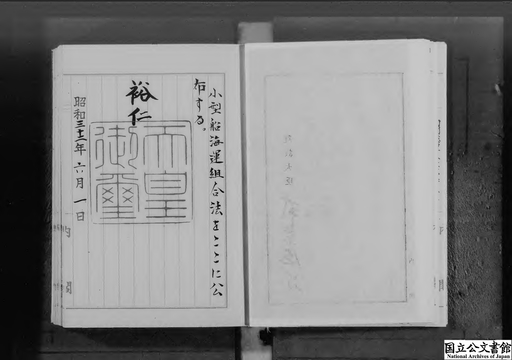 小型船海運組合法をここに公
布する。
裕仁
天皇
御璽
昭和三十二年六月一日
国立公文書館
National Archives of Japan